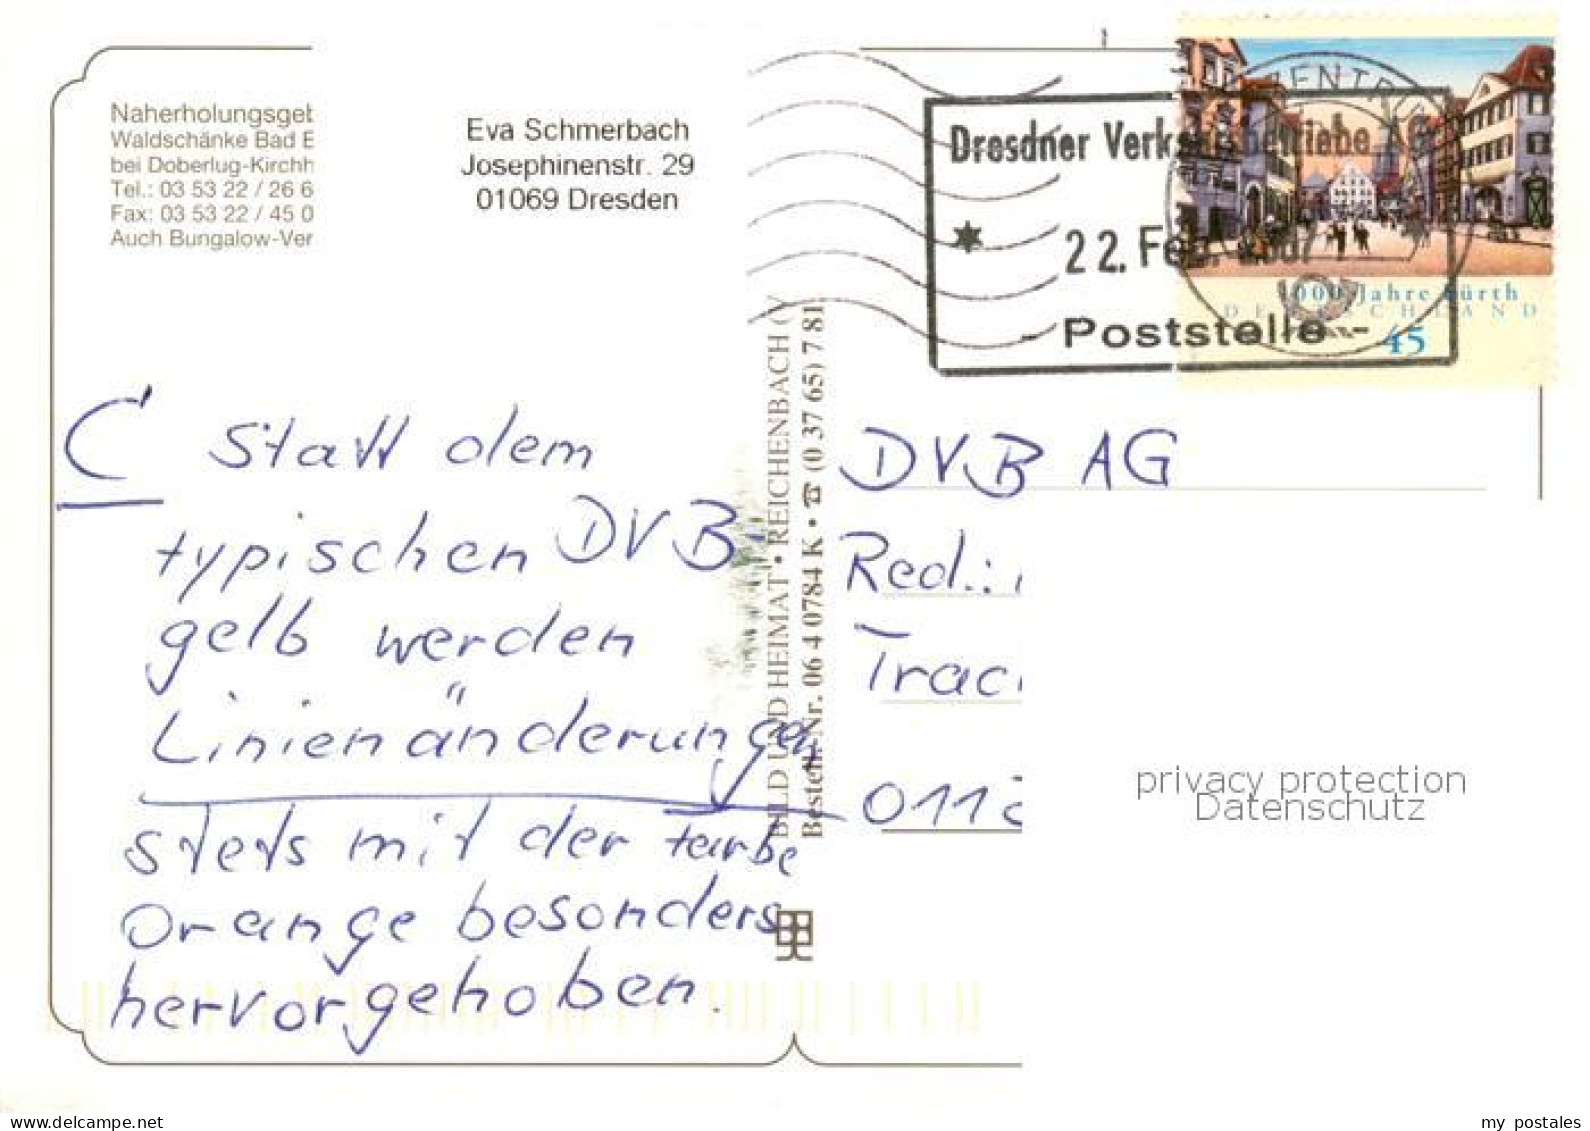 Naherholungsget
Waldschänke Bad E
bei Doberlug-Kirchh
Tel.: 03 53 22 / 26 6
Fax: 03 53 22 / 45 0
Auch Bungalow-Ver
Eva Schmerbach
Josephinenstr. 29
01069 Dresden
Dresdner Verkehrsbetriebe AG
22. Feb.
- Poststelle -
ZENTRUM
1000 Jahre Fürth
DEUTSCHLAND
45
C Statt dem
typischen DVB
gelb werden
Linienänderungen
stets mit der Farbe
Orange besonders
hervorgehoben.
BILD UND HEIMAT • REICHENBACH (V
Bestell-Nr. 06 4 0784 K • ☎ (0 37 65) 7 81
DVB AG
Red.:
Trac
0112
privacy protection
Datenschutz
my postales